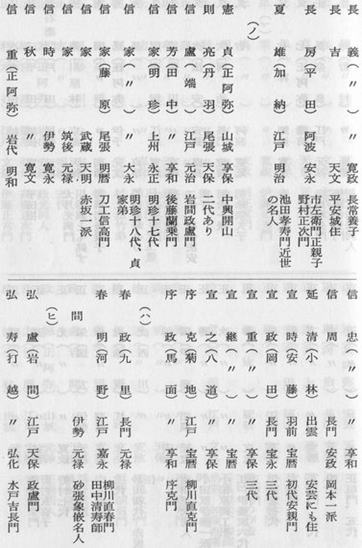 長義(〃)〃寛政 長常養子
長吉 〃天文 平安城住
長房(平田)阿波 安永 市左衛門正親子
野村正次門
夏雄(加納)江戸 明治 池田孝寿門近世
の名人
(ノ)
憲貞(正阿弥)山城 享保 中興開山
則亮(丹羽)尾張 天保 二代あり
信盧(端)江戸 元治 岩間政盧門
信芳(田中)〃享和 後藤蘭乗門
信家(明珍)上州 永正 明珍十七代
信家(〃)〃大永 明珍十八代、貞
家弟
信家(藤原)尾張 明暦 刀工信高門
信家 武蔵 天明 赤坂一派
信家 筑後 元禄
信時 伊勢 寛永
信秋 〃寛文
信重(正阿弥)岩代 明和
信忠(〃)〃享和
信周 長門 安政 岡本一派
延清(小林)出雲 安芸にも住
宣時(安藤)羽前 宝暦 初代安親門
宣政(岡田)長門 宝永 三代
宣重(〃)〃享保 三代
宣継(〃)〃宝暦
宣之(八道)〃享保
序克(菊地)江戸 宝暦 柳川直克門
序政(馬面)〃享和 序克門
(ハ)
春政(九里)長門 元禄
春明(河野)江戸 嘉永 柳川直春門
田中清寿師
間 伊勢 元禄 砂張象嵌名人
(ヒ)
弘盧(岩間)江戸 天保 政盧門
弘寿(打越)〃弘化 水戸吉長門